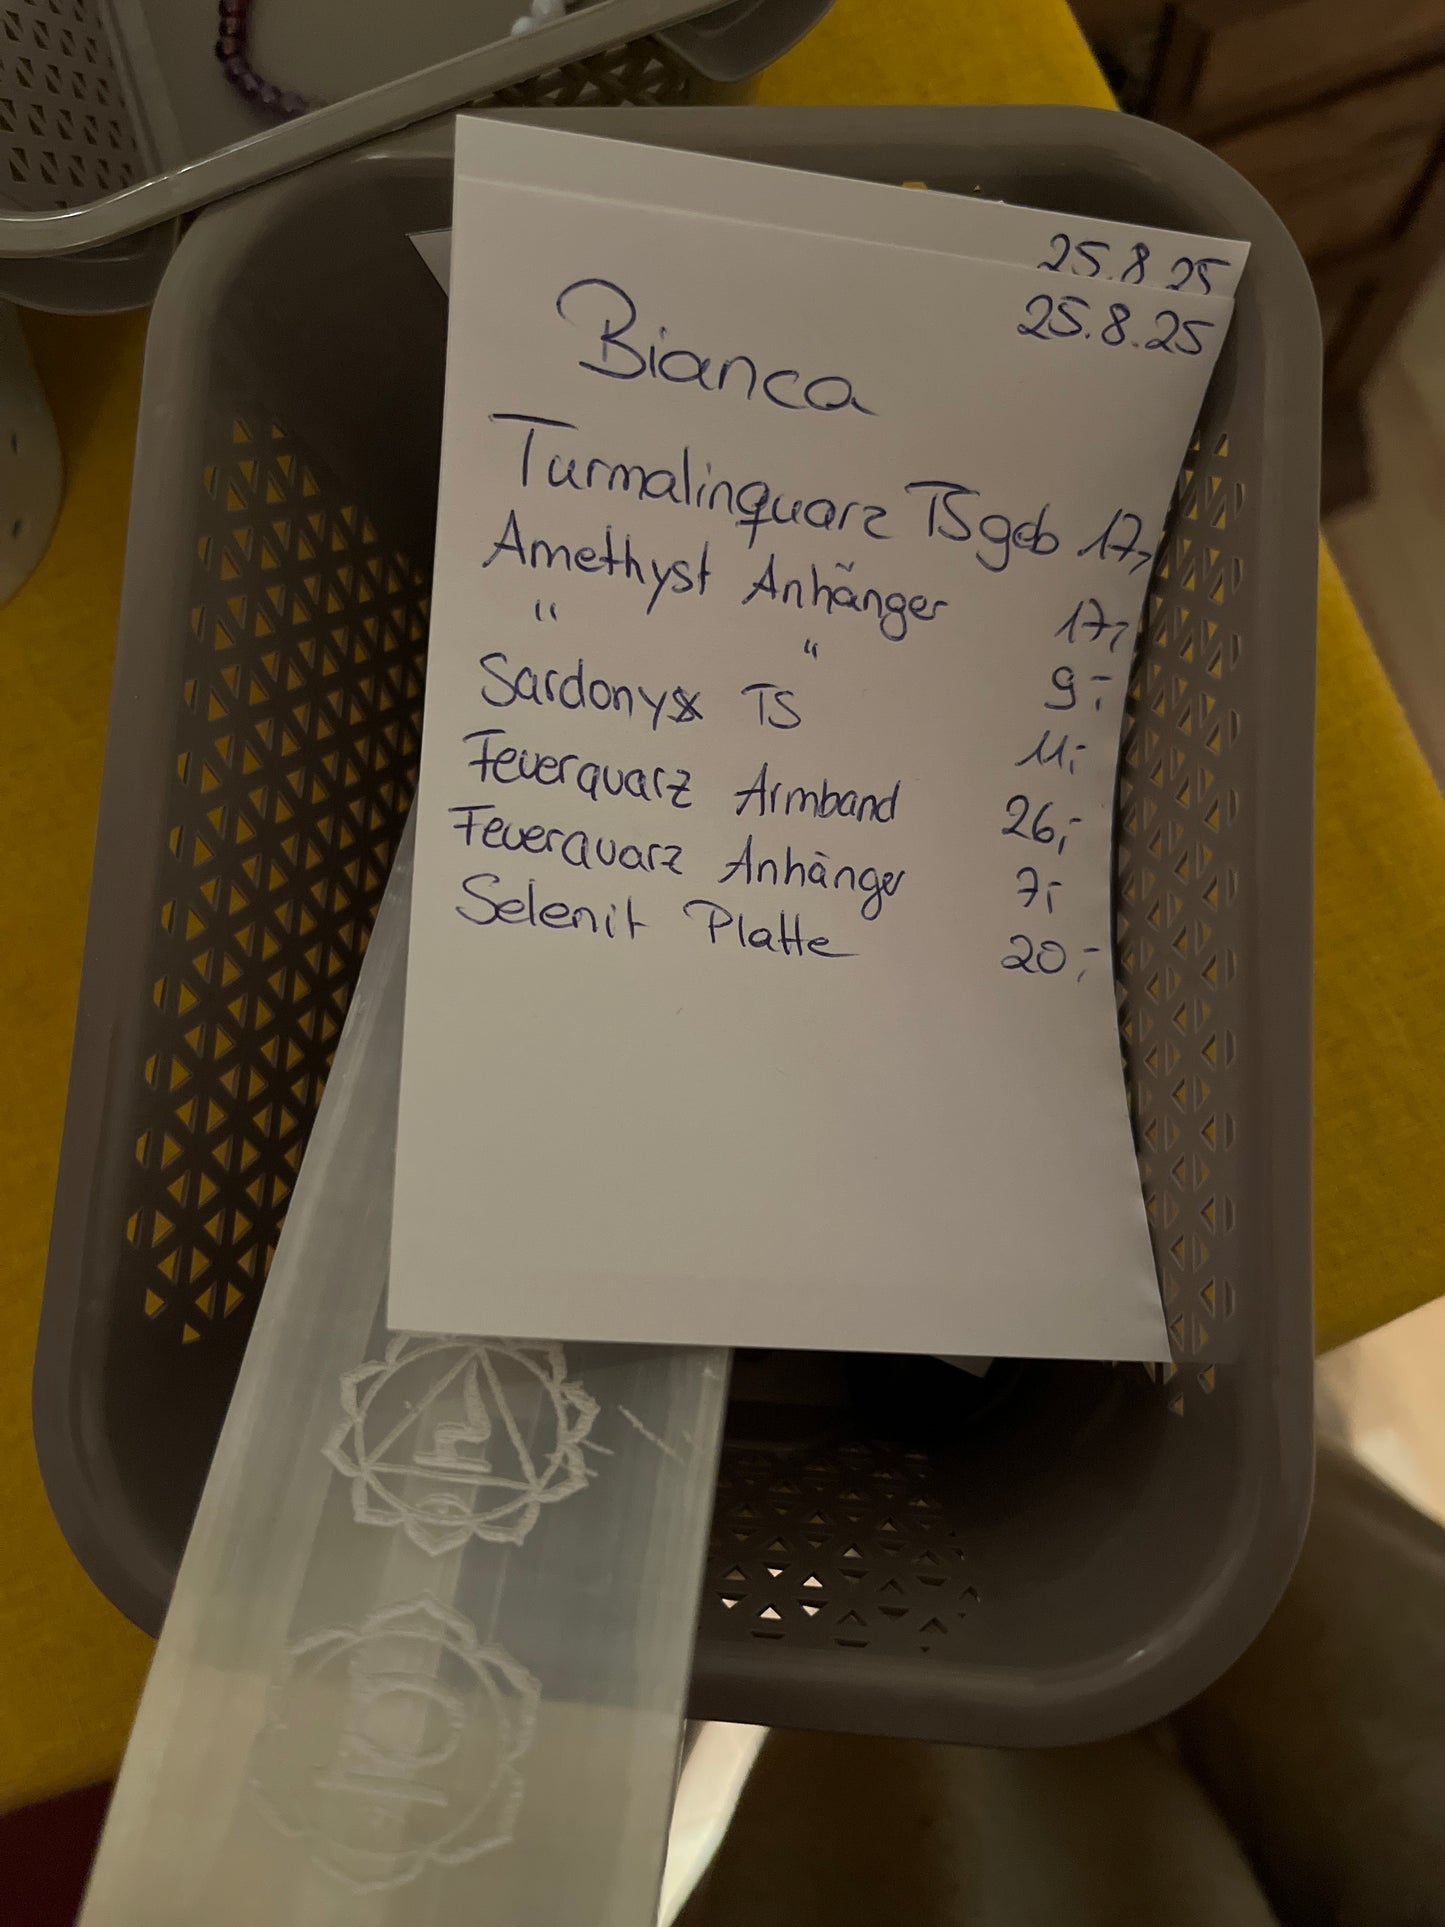 25.8.25
25.8.25
Bianca
Turmalinquarz TS geb 17,-
Amethyst Anhänger 17,-
" " 9,-
Sardonyx TS 11,-
Feuerquarz Armband 26,-
Feuerquarz Anhänger 7,-
Selenit Platte 20,-